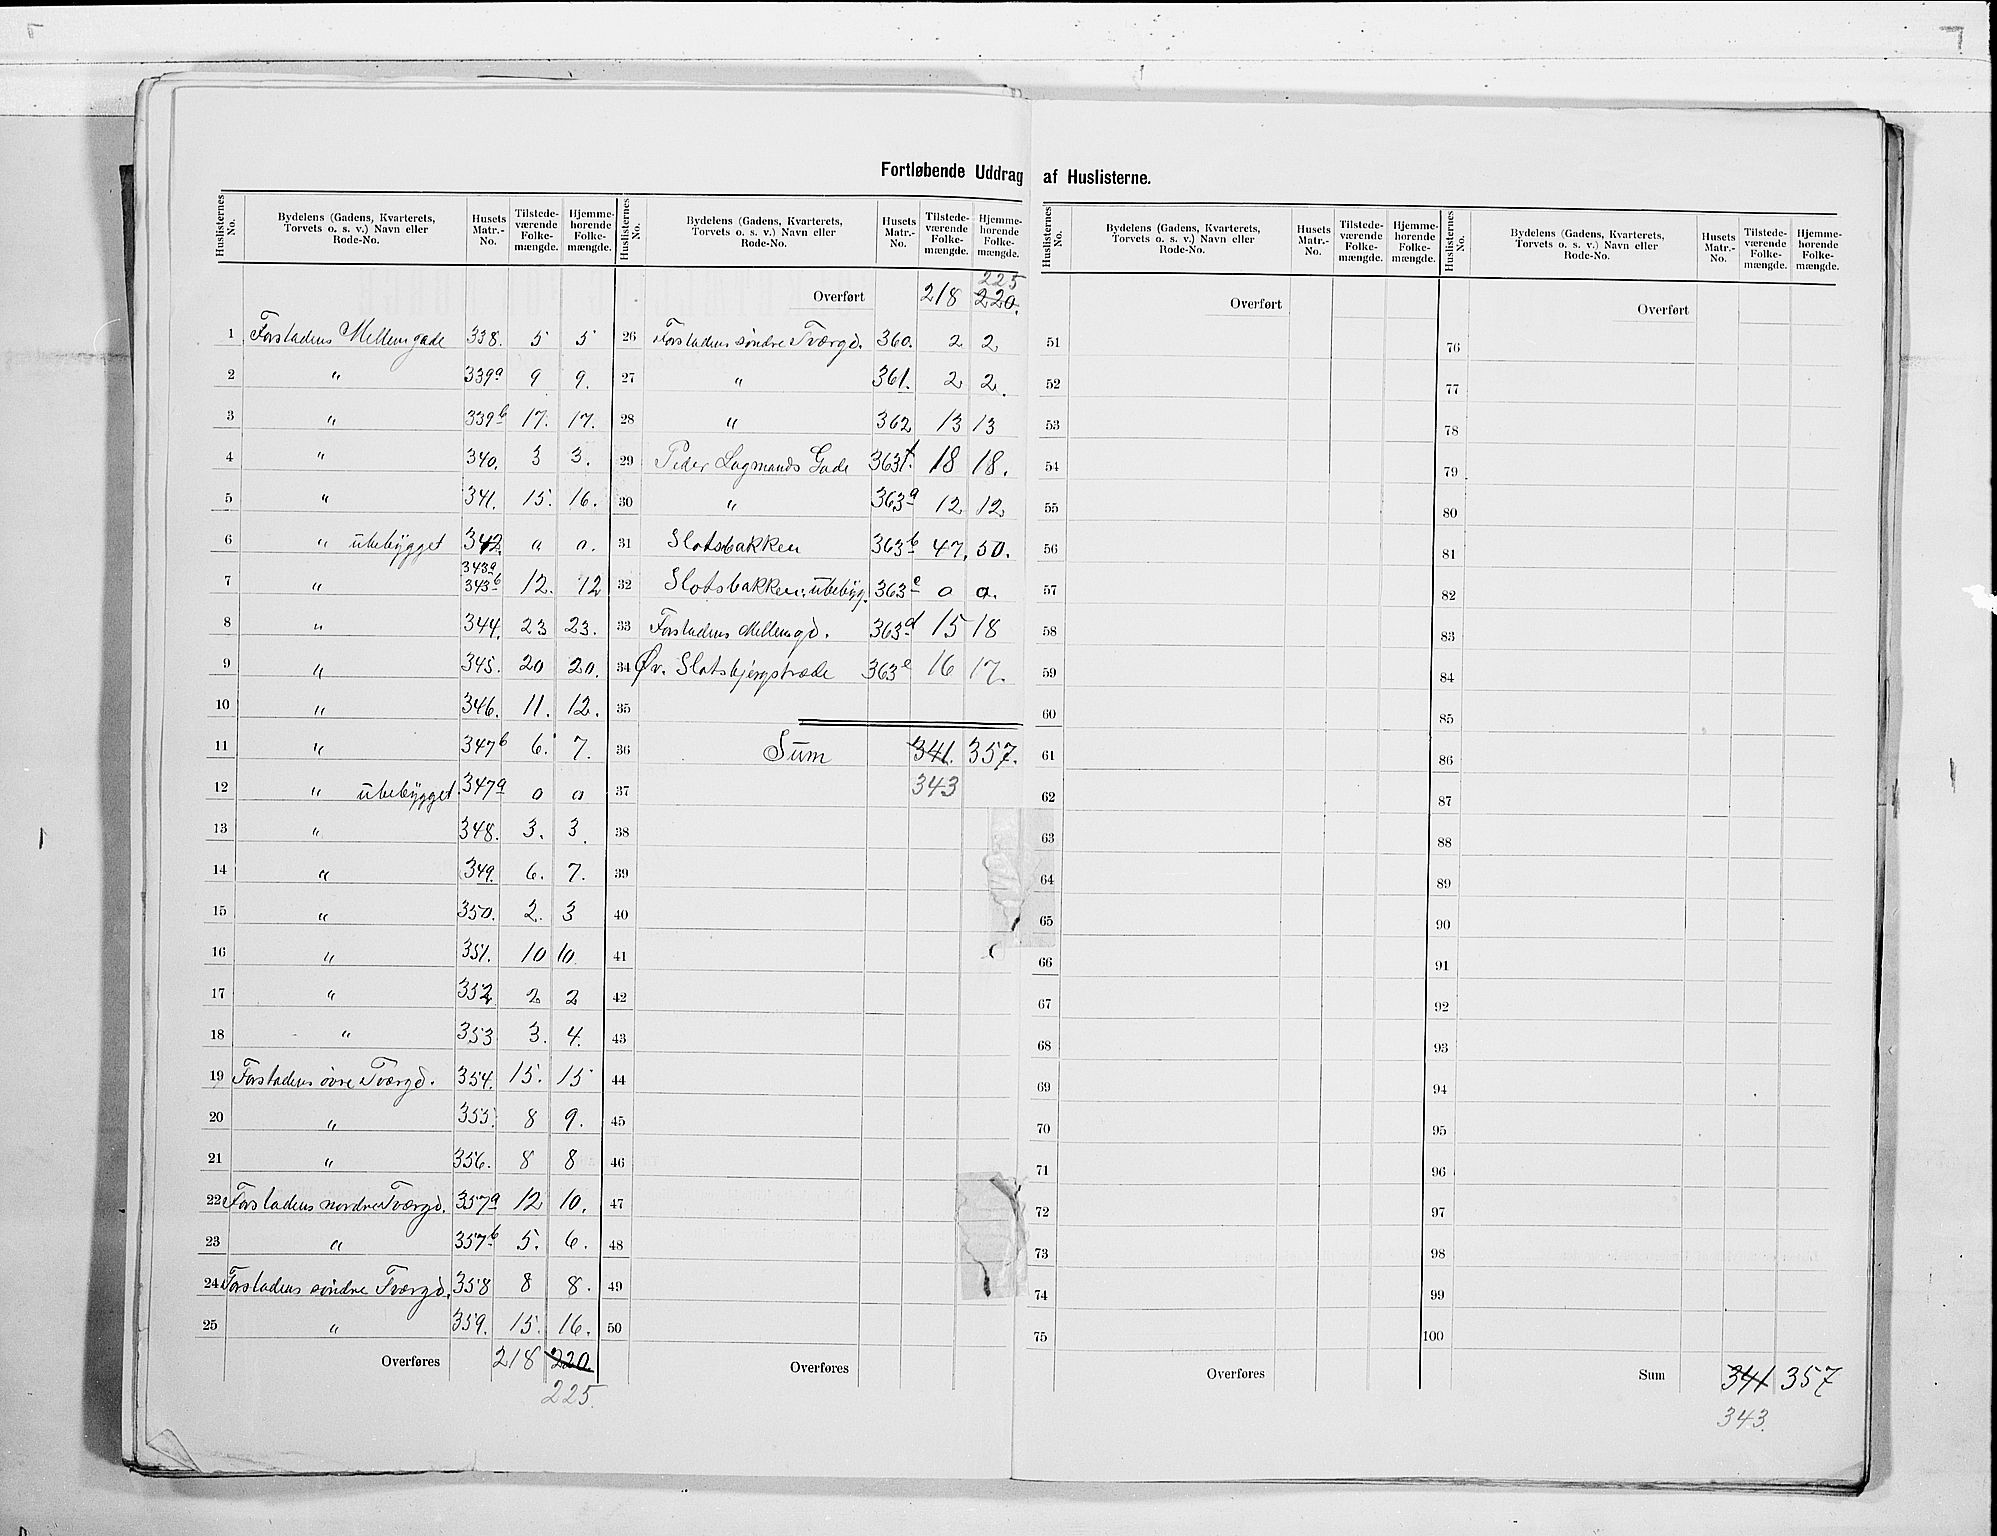 Fortløbende Uddrag af Huslisterne.
Huslisternes No. Bydelens (Gadens, Kvarterets, Torvets o. s. v.) Navn eller Rode-No. Husets Matr.-No. Tilstedeværende Folkemængde. Hjemmehørende Folkemængde.
1 Forstadens Mellemgade 338. 5 5
2 " 339a 9 9.
3 " 339b 17. 17.
4 " 340. 3 3.
5 " 341. 15. 16.
6 " ubebygget 342. 0 0.
7 " 343a 343b 12. 12
8 " 344. 23 23.
9 " 345. 20 20.
10 " 346. 11. 12.
11 " 347b 6. 7.
12 " ubebygget. 347a 0 0
13 " 348. 3. 3.
14 " 349. 6. 7.
15 " 350. 2. 3
16 " 351. 10 10
17 " 352 2 2
18 " 353 3. 4.
19 Forstadens övre Tværgd. 354. 15. 15
20 " 355. 8 9.
21 " 356. 8 8
22 Forstadens nordre Tværgd. 357a 12 10.
23 " 357b 5. 6.
24 Forstadens söndre Tværgd. 358 8 8.
25 " 359. 15. 16.
Overføres 218 220.
225.
Huslisternes No. Bydelens (Gadens, Kvarterets, Torvets o. s. v.) Navn eller Rode-No. Husets Matr.-No. Tilstedeværende Folkemængde. Hjemmehørende Folkemængde.
225
Overført 218 220.
26 Forstadens söndre Tværgd. 360. 2 2
27 " 361. 2 2.
28 " 362 13 13
29 Peder Lagmands Gade 363f. 18 18.
30 " 363a 12 12
31 Slotsbakken 363b 47. 50.
32 Slotsbakken. ubebyg. 363c 0 0.
33 Forstadens Mellemgd. 363d 15 18
34 Øv. Slotsbjergstræde 363e 16 17.
35
36 Sum 341. 357.
37 343
38
39
40
41
42
43
44
45
46
47
48
49
50
Overføres
Huslisternes No. Bydelens (Gadens, Kvarterets, Torvets o. s. v.) Navn eller Rode-No. Husets Matr.-No. Tilstedeværende Folkemængde. Hjemmehørende Folkemængde.
Overført
51
52
53
54
55
56
57
58
59
60
61
62
63
64
65
66
67
68
69
70
71
72
73
74
75
Overføres
Huslisternes No. Bydelens (Gadens, Kvarterets, Torvets o. s. v.) Navn eller Rode-No. Husets Matr.-No. Tilstedeværende Folkemængde. Hjemmehørende Folkemængde.
Overført
76
77
78
79
80
81
82
83
84
85
86
87
88
89
90
91
92
93
94
95
96
97
98
99
100
Sum 341 357
343.